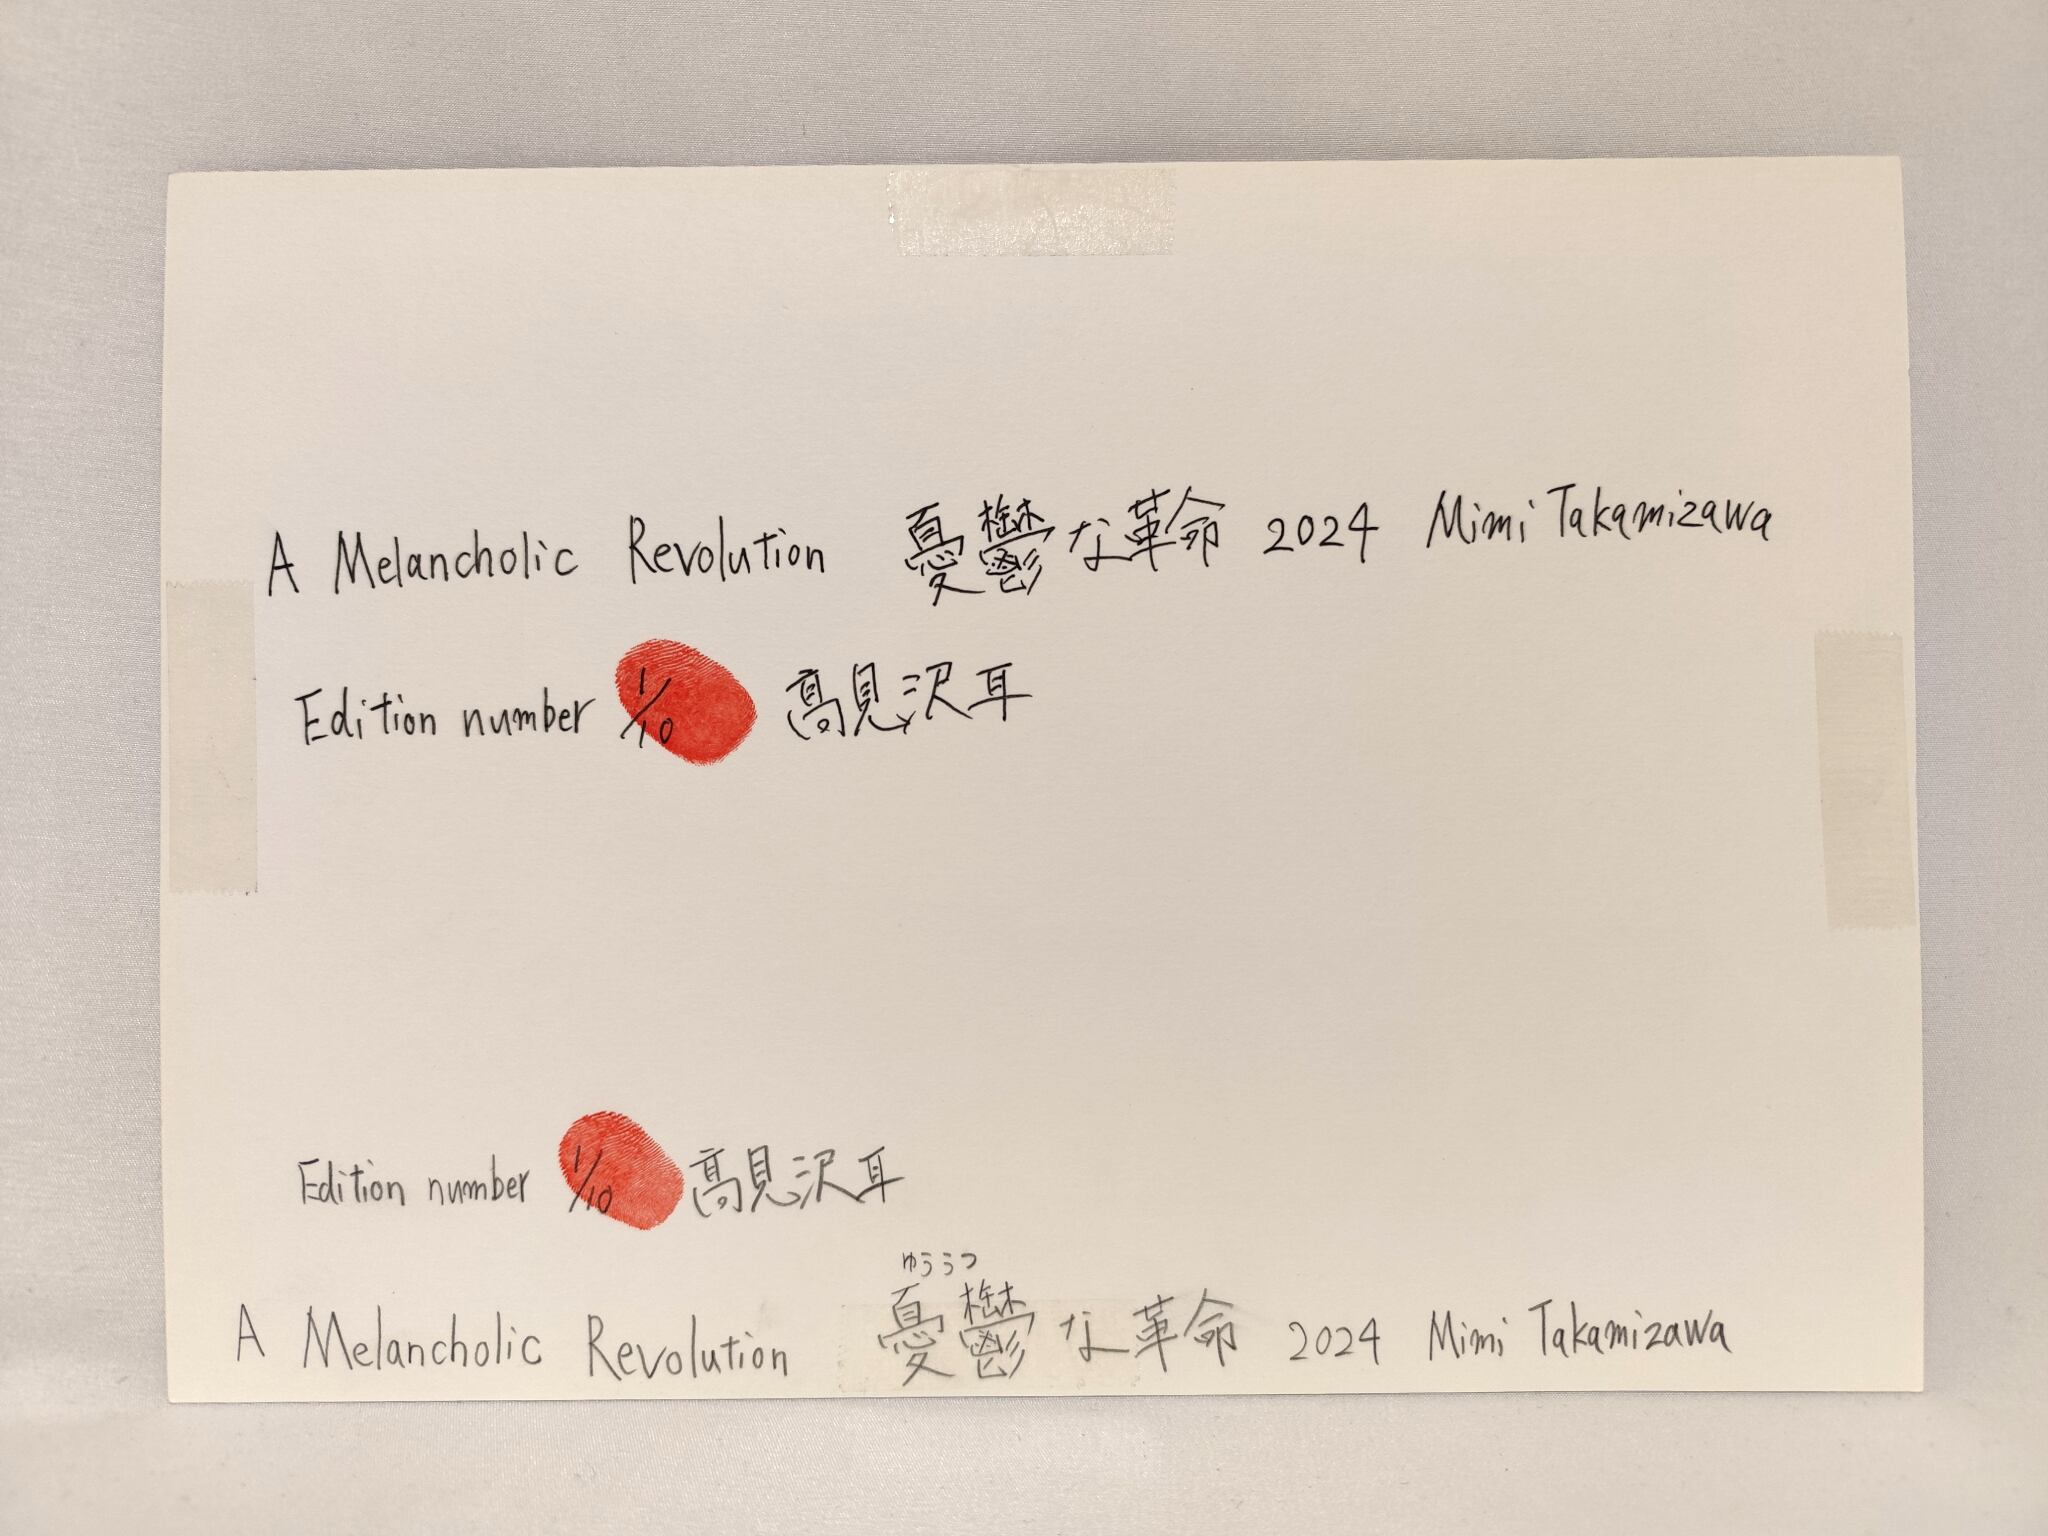 A Melancholic Revolution 憂鬱な革命 2024 Mimi Takamizawa
Edition number 1/10 高見沢耳
Edition number 1/10 高見沢耳
ゆううつ
A Melancholic Revolution 憂鬱な革命 2024 Mimi Takamizawa